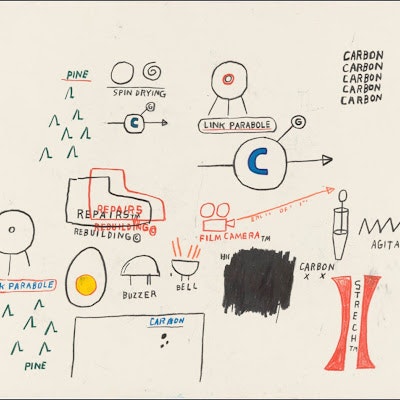 PINE
SPIN DRYING
G
C
LINK PARABOLE
G
C
CARBON
CARBON
CARBON
CARBON
CARBON
REPAIRS
REPAIRS TM
REBUILDING ©
REBUILDING ©
FILM CAMERA TM
AGITA
K PARABOLE
BUZZER
BELL
CARBON
X X
STRECH TM
CARBON
PINE